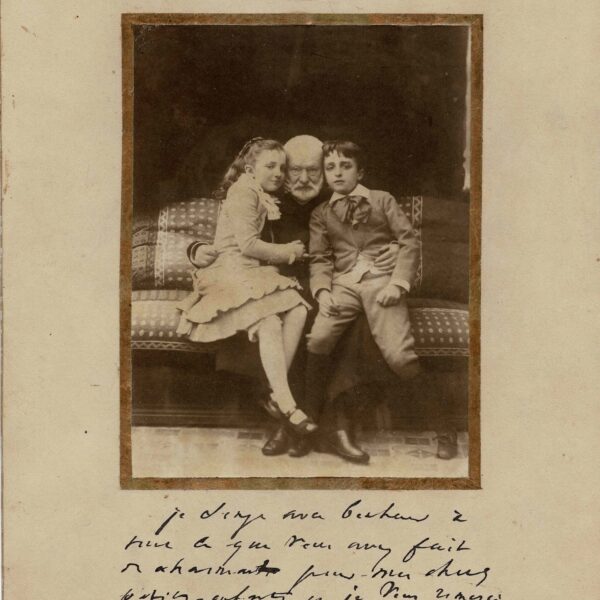 je songe avec bonheur à
tout ce que vous avez fait
de charmant pour mes chers
petits-enfants et je vous remerci